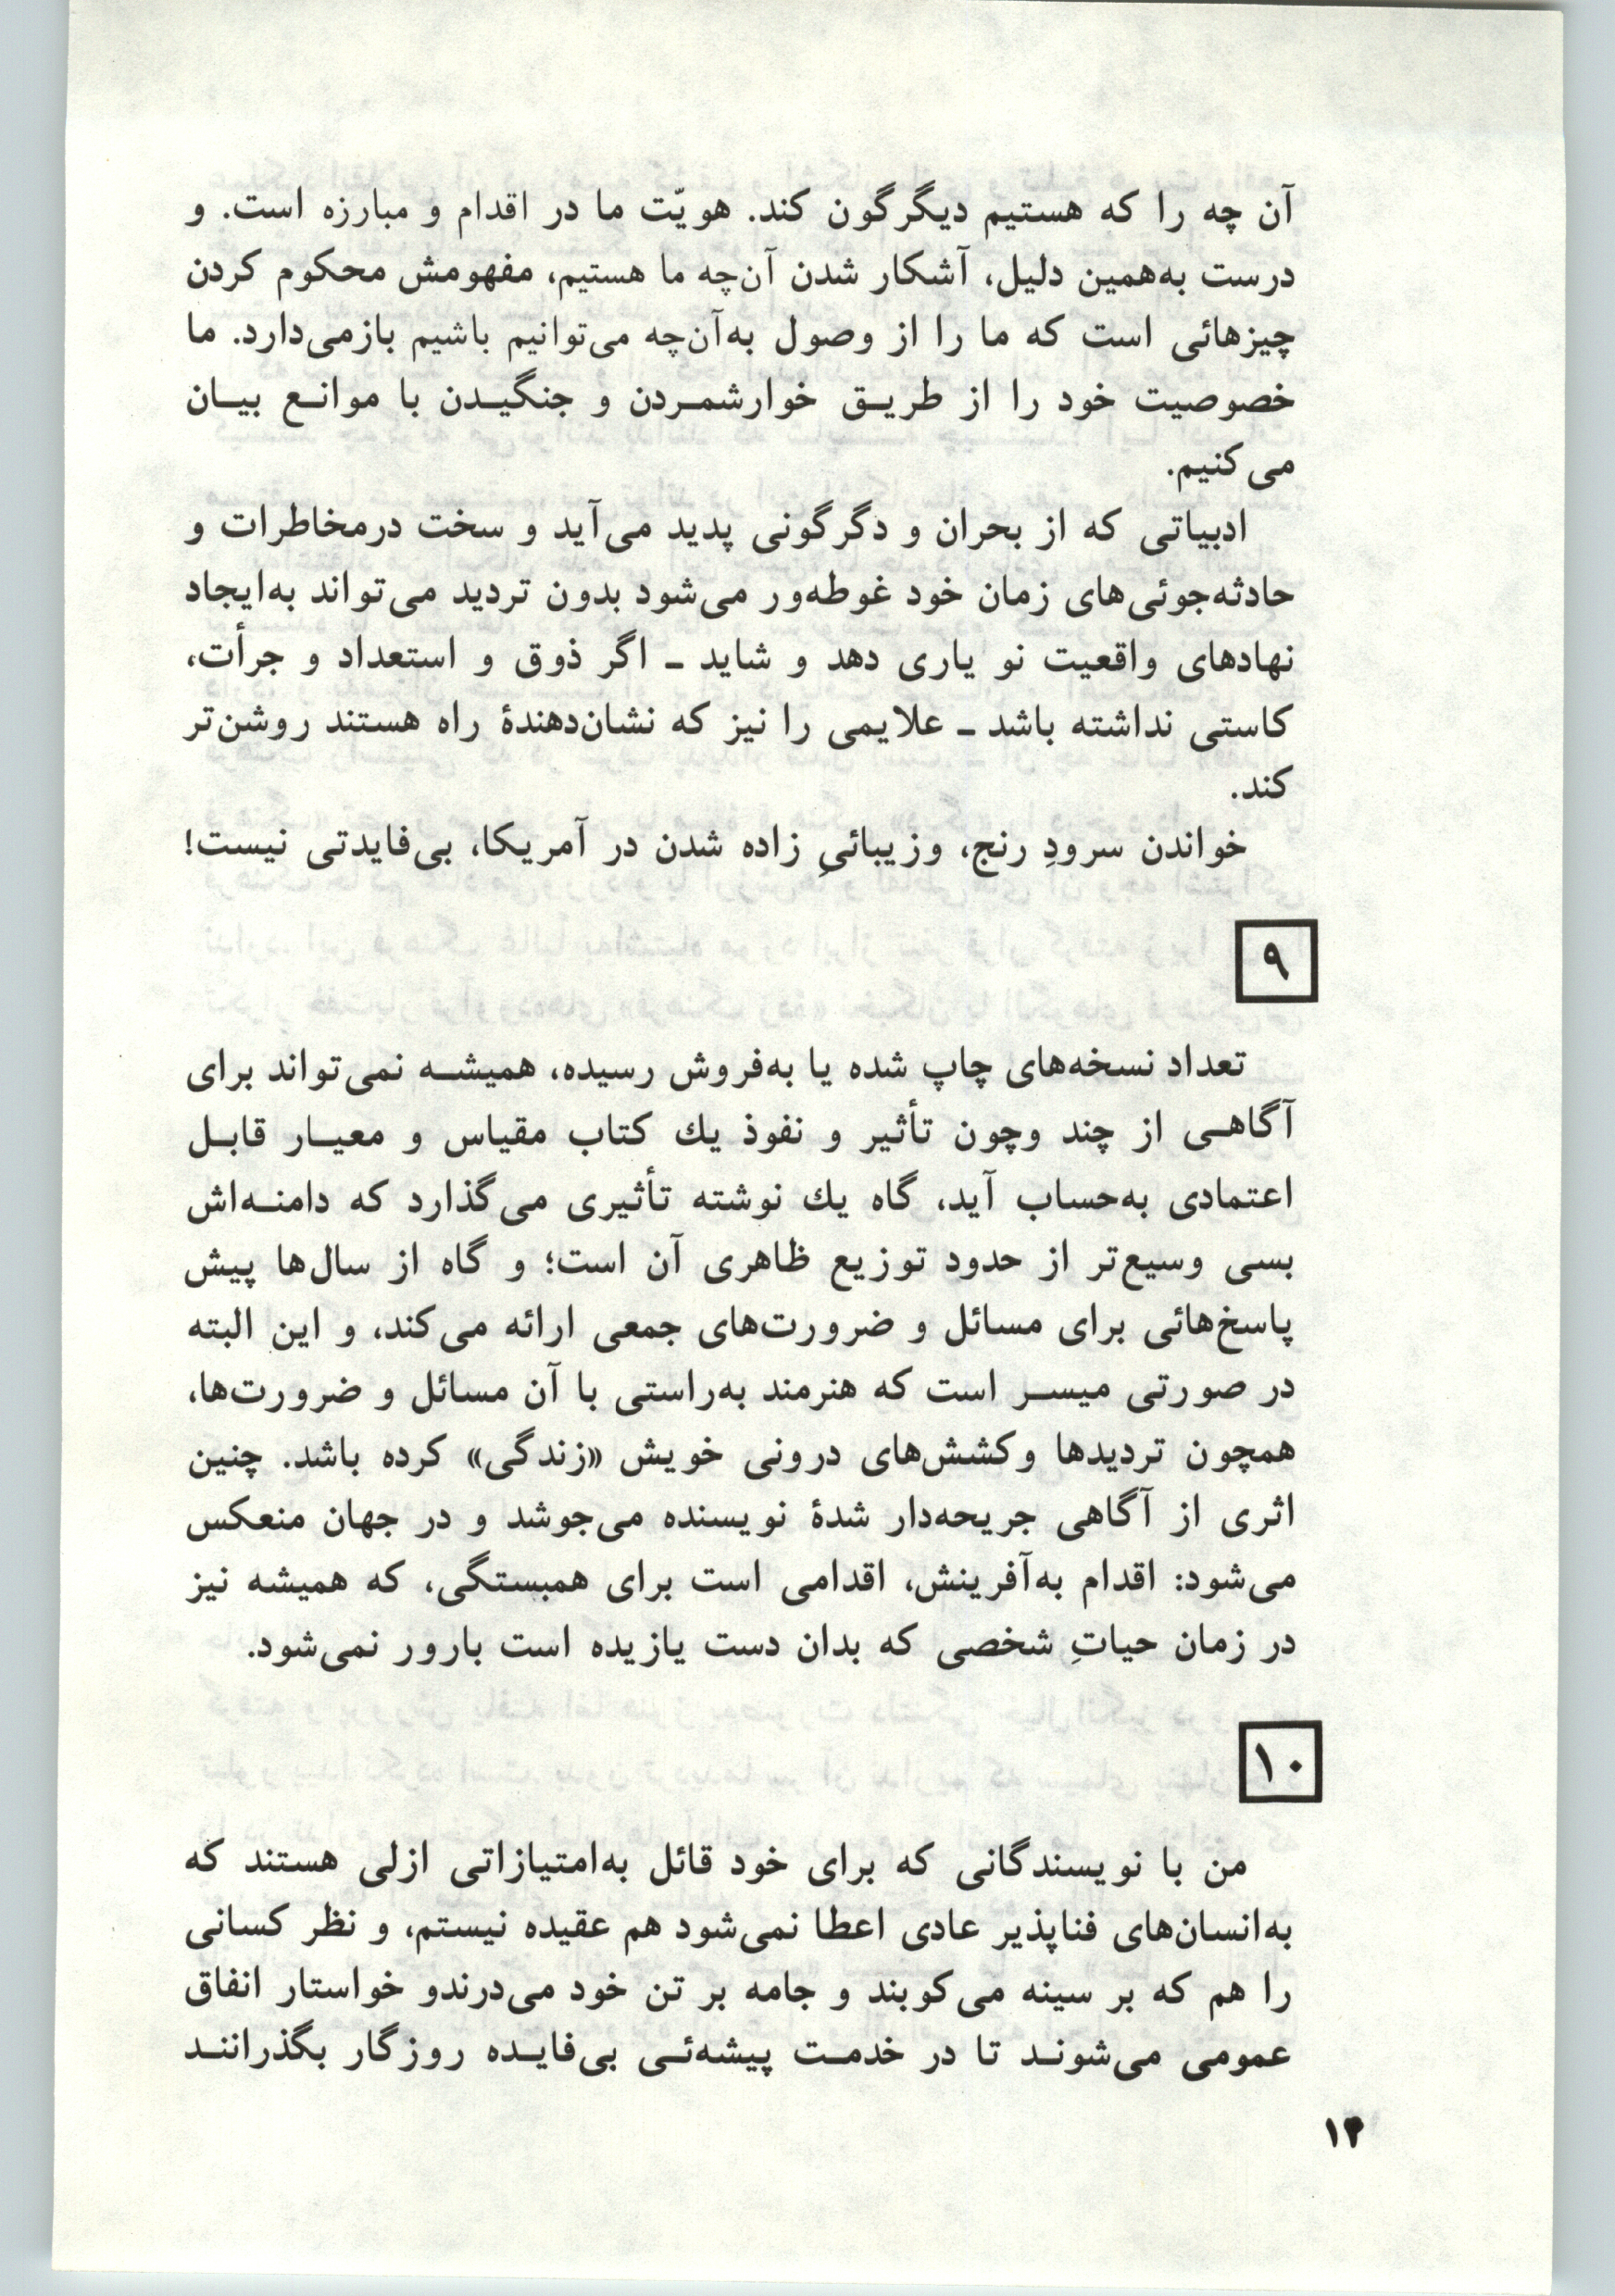 آن چه را که هستیم دیگرگون کند. هویّت ما در اقدام و مبارزه است. و
درست به‌همین دلیل، آشکار شدن آن‌چه ما هستیم، مفهومش محکوم کردن
چیزهائی است که ما را از وصول به‌آن‌چه می‌توانیم باشیم بازمی‌دارد. ما
خصوصیت خود را از طریـق خوارشمـردن و جنگیـدن با موانـع بیـان
می‌کنیم.
ادبیاتی که از بحران و دگرگونی پدید می‌آید و سخت درمخاطرات و
حادثه‌جوئی‌های زمان خود غوطه‌ور می‌شود بدون تردید می‌تواند به‌ایجاد
نهادهای واقعیت نو یاری دهد و شاید ـ اگر ذوق و استعداد و جرأت،
کاستی نداشته باشد ـ علایمی را نیز که نشان‌دهندهٔ راه هستند روشن‌تر
کند.
خواندن سرودِ رنج، وزیبائیِ زاده شدن در آمریکا، بی‌فایدتی نیست!
۹
تعداد نسخه‌های چاپ شده یا به‌فروش رسیده، همیشـه نمی‌تواند برای
آگاهـی از چند وچون تأثیر و نفوذ یك کتاب مقیاس و معیـار قابـل
اعتمادی به‌حساب آید، گاه یك نوشته تأثیری می‌گذارد که دامنـه‌اش
بسی وسیع‌تر از حدود توزیع ظاهری آن است؛ و گاه از سال‌ها پیش
پاسخ‌هائی برای مسائل و ضرورت‌های جمعی ارائه می‌کند، و این البته
در صورتی میسـر است که هنرمند به‌راستی با آن مسائل و ضرورت‌ها،
همچون تردیدها وکشش‌های درونی خویش «زندگی» کرده باشد. چنین
اثری از آگاهی جریحه‌دار شدهٔ نویسنده می‌جوشد و در جهان منعکس
می‌شود: اقدام به‌آفرینش، اقدامی است برای همبستگی، که همیشه نیز
در زمان حیاتِ شخصی که بدان دست یازیده است بارور نمی‌شود.
۱۰
من با نویسندگانی که برای خود قائل به‌امتیازاتی ازلی هستند که
به‌انسان‌های فناپذیر عادی اعطا نمی‌شود هم عقیده نیستم، و نظر کسانی
را هم که بر سینه می‌کوبند و جامه بر تن خود می‌درندو خواستار انفاق
عمومی می‌شونـد تا در خدمـت پیشه‌ئـی بی‌فایـده روزگار بگذراننـد
۱۴